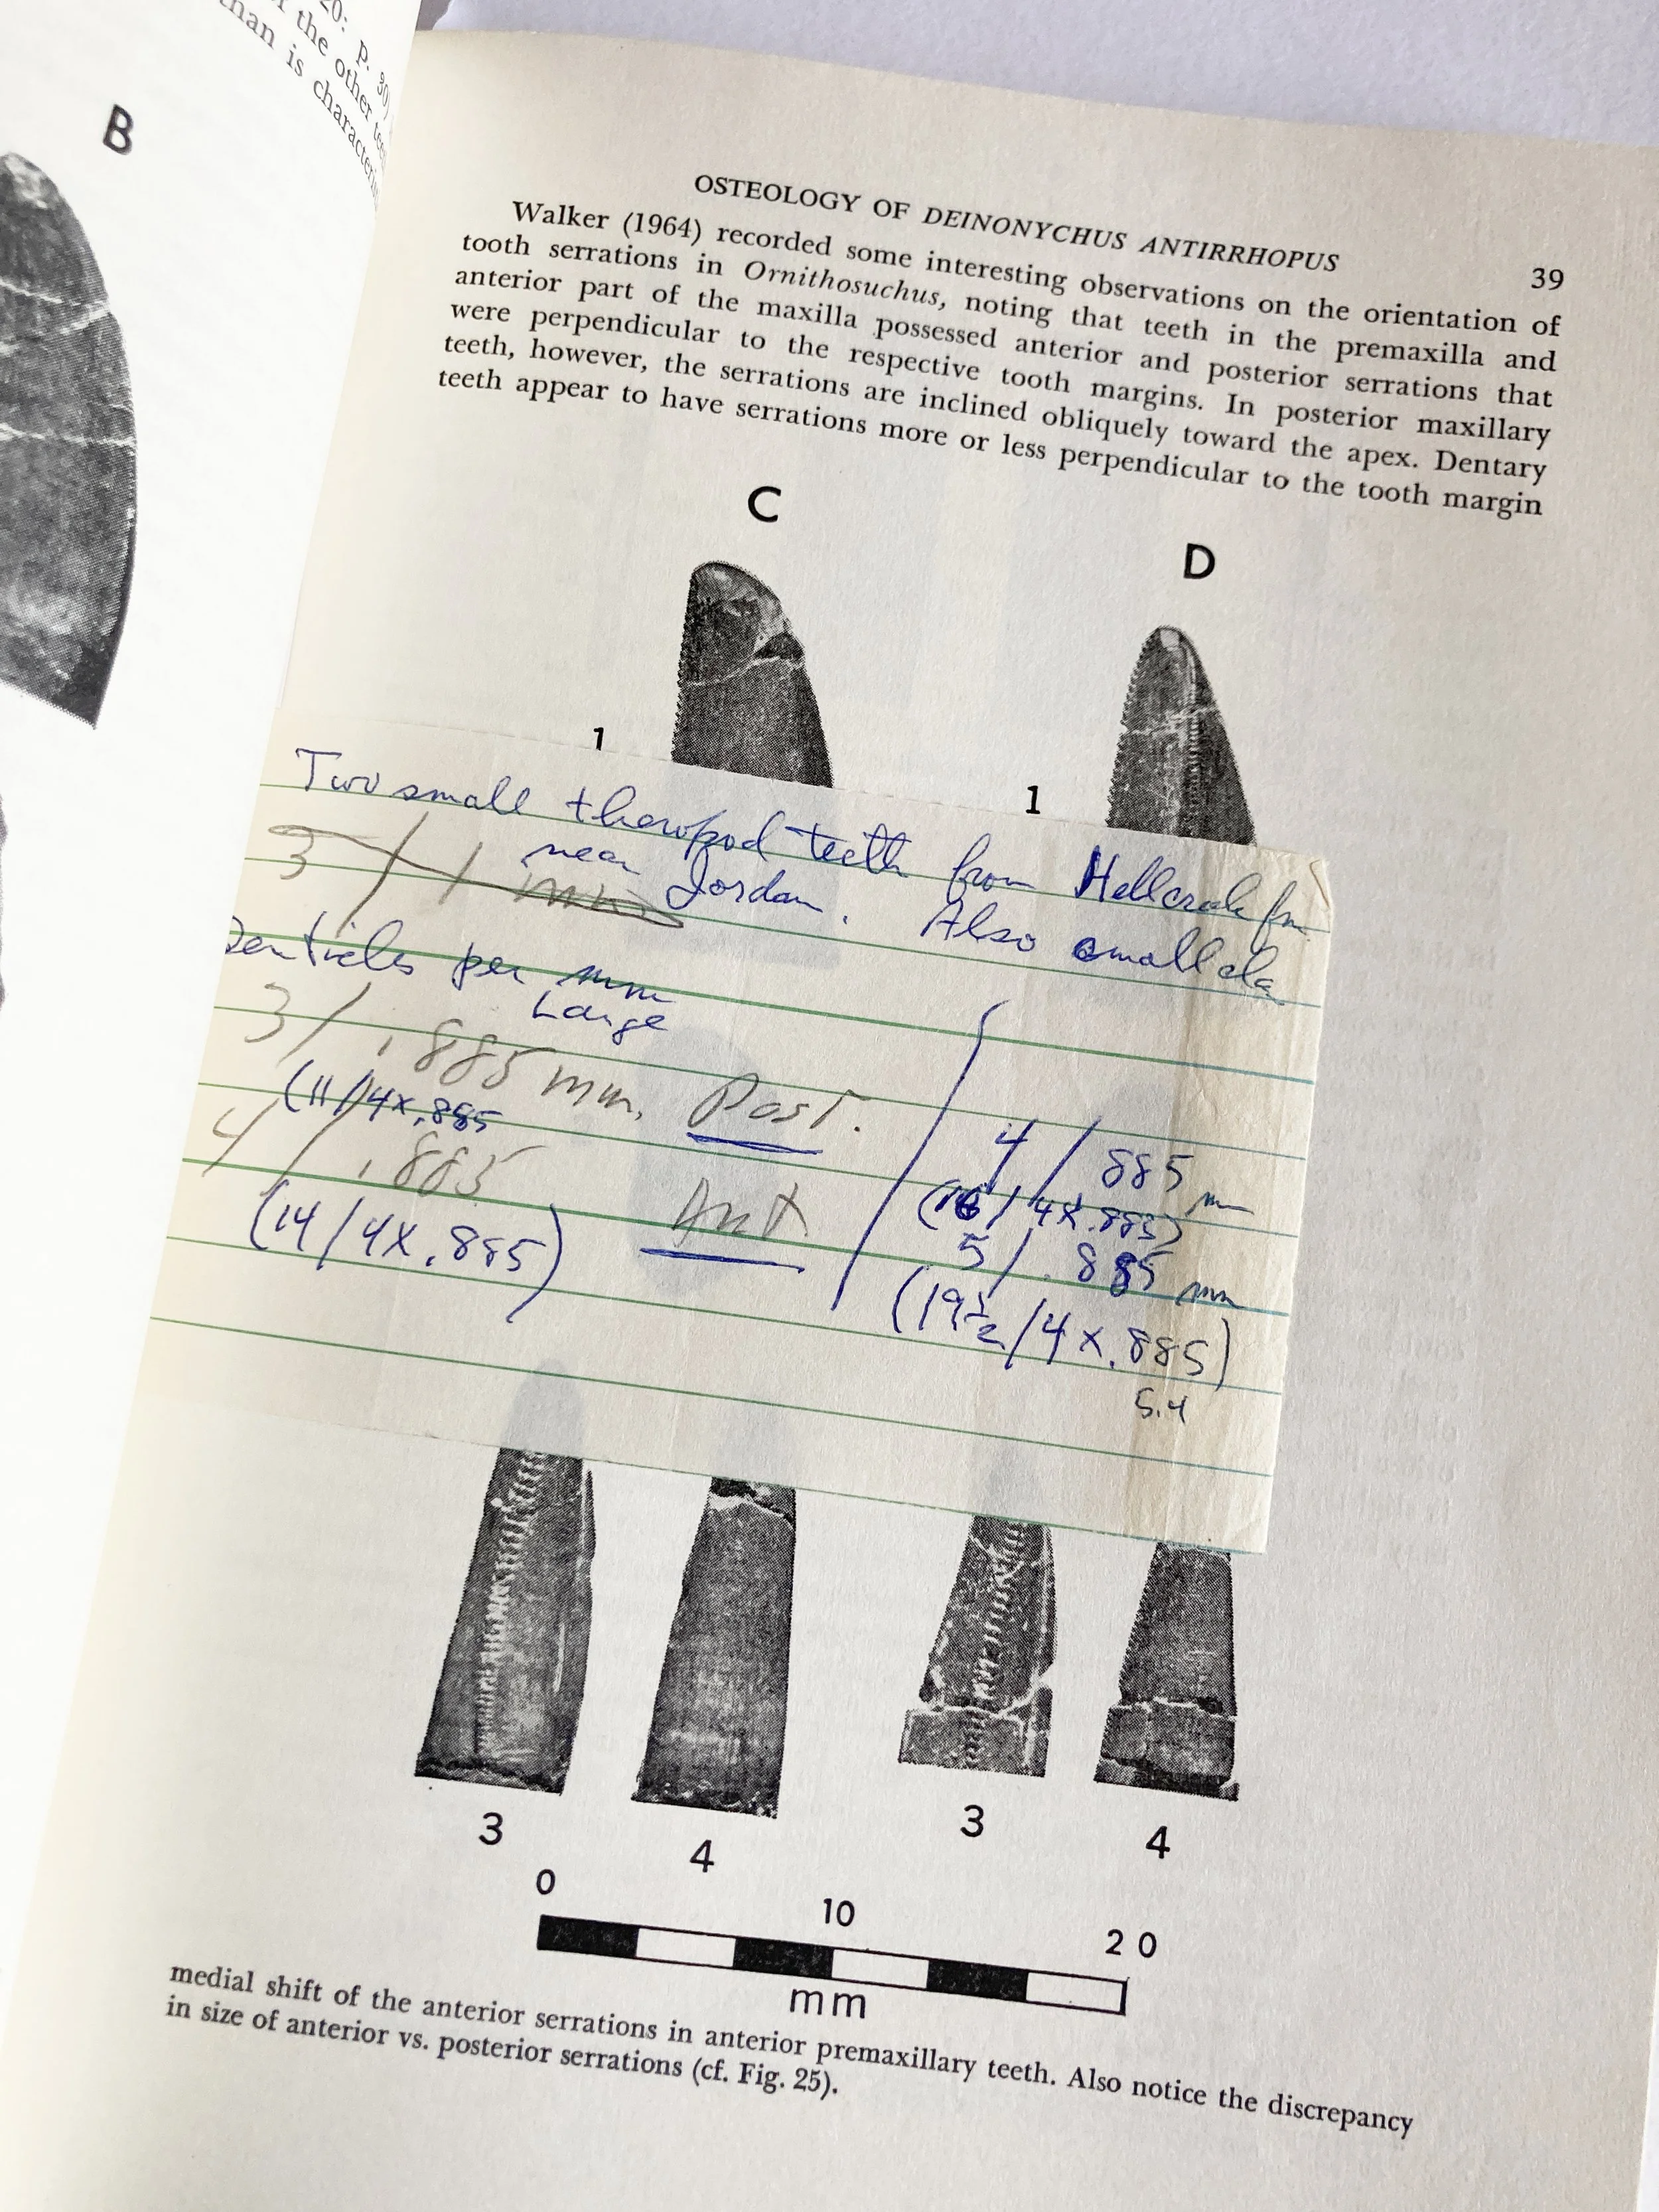 20: p. 30)
the other
than is
B
OSTEOLOGY OF DEINONYCHUS ANTIRRHOPUS
39
Walker (1964) recorded some interesting observations on the orientation of
tooth serrations in Ornithosuchus, noting that teeth in the premaxilla and
anterior part of the maxilla possessed anterior and posterior serrations that
were perpendicular to the respective tooth margins. In posterior maxillary
teeth, however, the serrations are inclined obliquely toward the apex. Dentary
teeth appear to have serrations more or less perpendicular to the tooth margin
C
D
1
1
Two small theropod teeth from Hellcreek fm.
near Jordan. Also small cla
3 / 1 mm
Denticles per mm
Large
3/ .885 mm. Post.
(11/4x.885
4/ .885 Ant
(14/4X.885)
4/ 885 mm
(16/ 4X.885)
5/ .885 mm
(19½/4x.885)
5.4
3
4
3
4
0
10
20
mm
medial shift of the anterior serrations in anterior premaxillary teeth. Also notice the discrepancy
in size of anterior vs. posterior serrations (cf. Fig. 25).